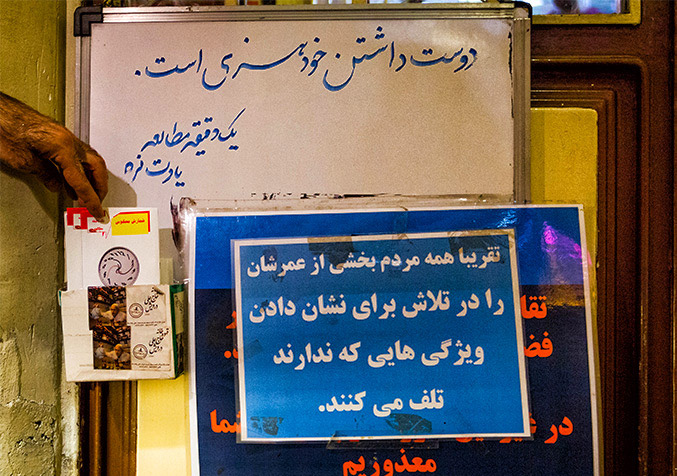 دوست داشتن خود هنری است.
یک دقیقه مطالعه
یادت نره
تقریبا همه مردم بخشی از عمرشان
را در تلاش برای نشان دادن
ویژگی هایی که ندارند
تلف می کنند.
در
شما
معذوریم